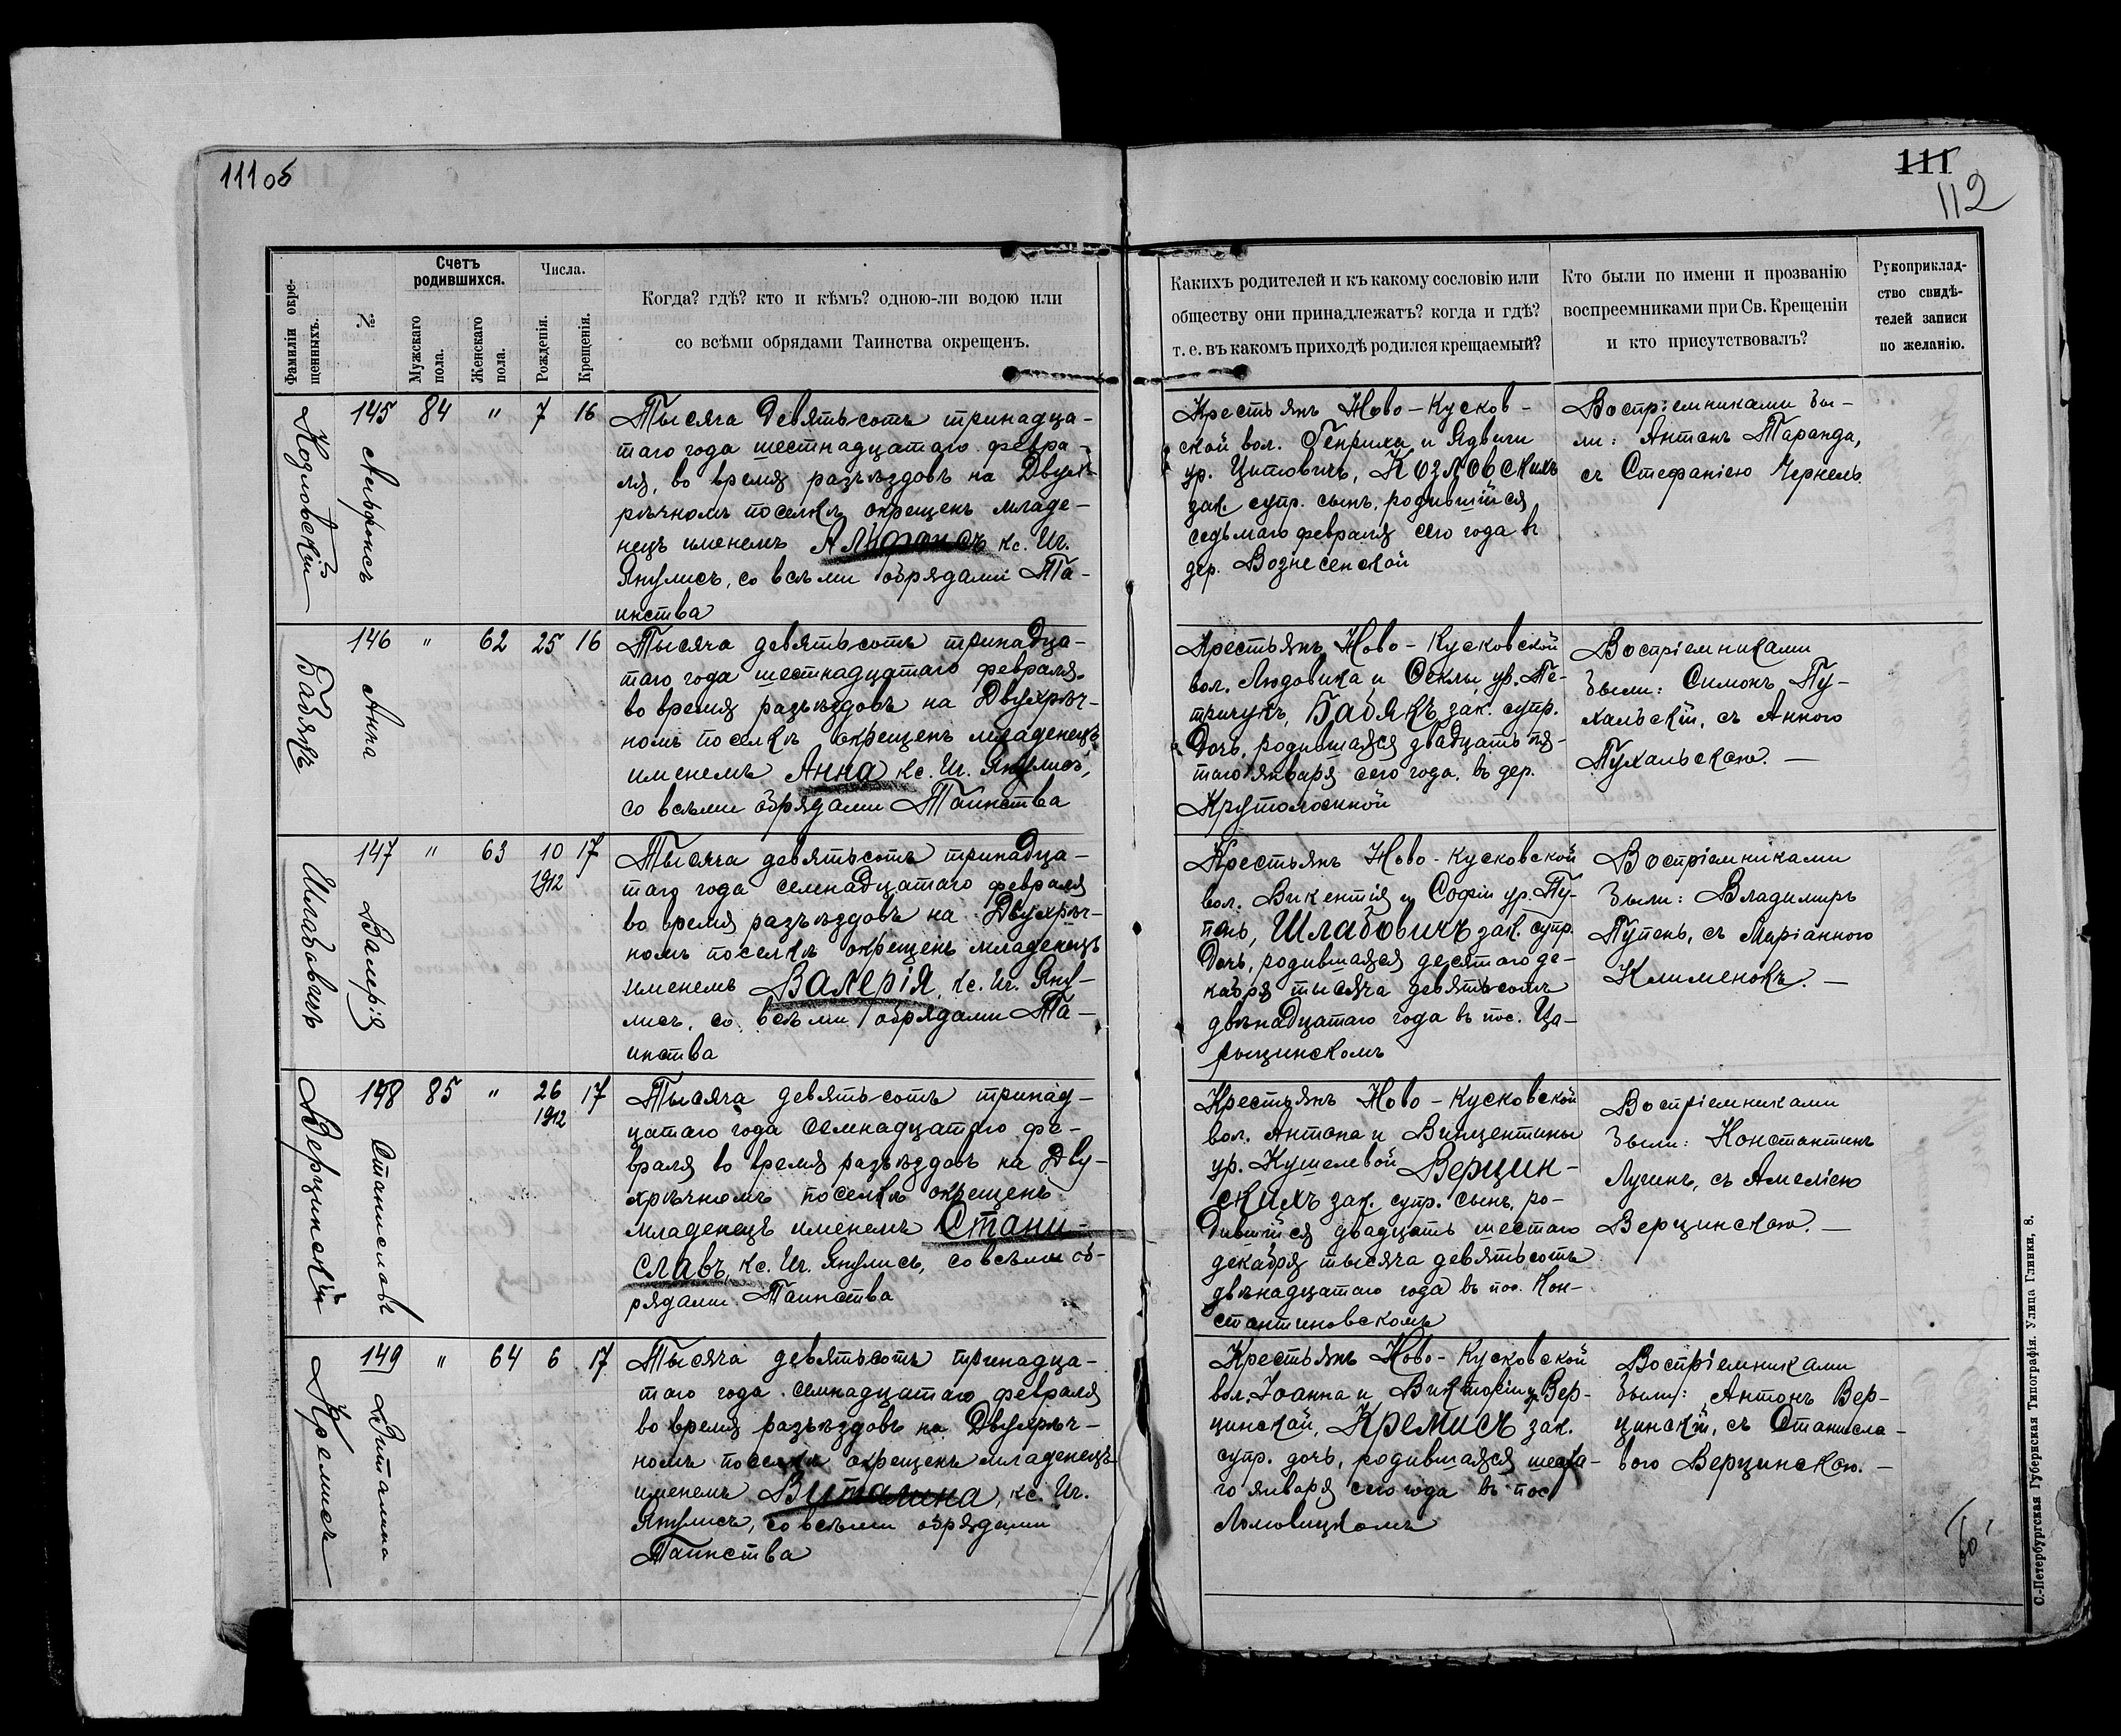 111 об
111
112
Фамиліи окрещенныхъ.
№
Счетъ родившихся.
Мужскаго пола.
Женскаго пола.
Числа.
Рожденія.
Крещенія.
Когда? гдѣ? кто и кѣмъ? одною-ли водою или
со всѣми обрядами Таинства окрещенъ.
Какихъ родителей и къ какому сословію или
обществу они принадлежатъ? когда и гдѣ?
т. е. въ какомъ приходѣ родился крещаемый?
Кто были по имени и прозванію
воспреемниками при Св. Крещеніи
и кто присутствовалъ?
Рукоприклад-
ство свидѣ-
телей записи
по желанію.
Козловскій
145 84 " 7 16
Альфонсъ
Тысяча девятьсотъ тринадца-
таго года шестнадцатаго февра-
ля, во время разъѣздовъ на Двух-
рѣчномъ поселкѣ окрещенъ младе-
нецъ именемъ Альфонсъ кс. Иг.
Янулисъ, со всѣми обрядами Та-
инства
Крестьянъ Ново-Кусков-
ской вол. Генриха и Ядвиги
ур. Цитовичъ, Козловскихъ
зак. супр. сынъ, родившійся
седьмаго февраля сего года въ
дер. Вознесенской
Воспріемниками бы-
ли: Антонъ Таранда,
съ Стефаніею Чернель
Бабякъ
146 " 62 25 16
Анна
Тысяча девятьсотъ тринадца-
таго года шестнадцатаго февраля,
во время разъѣздовъ на Двухрѣч-
номъ поселкѣ окрещенъ младенецъ
именемъ Анна кс. Иг. Янулисъ,
со всѣми обрядами Таинства
Крестьянъ Ново-Кусковской
вол. Людовика и Феклы ур. Пе-
тричукъ, Бабякъ зак. супр.
дочь, родившаяся двадцать пя-
таго января сего года, въ дер.
Круполосиной
Воспріемниками
были: Симонъ Пу-
хальскій, съ Анною
Пухальскою. —
Шлабовичъ
147 " 63 10 17
1912
Валерія
Тысяча девятьсотъ тринадца-
таго года семнадцатаго февраля
во время разъѣздовъ на Двухрѣч-
номъ поселкѣ окрещенъ младенецъ
именемъ Валерія, кс. Иг. Яну-
лисъ, со всѣми обрядами Та-
инства
Крестьянъ Ново-Кусковской
вол. Викентія и Софіи ур. Пу-
пень, Шлабовичъ зак. супр.
дочь, родившаяся десятаго де-
кабря тысяча девятьсотъ
двѣнадцатаго года въ пос. Ца-
рыцинскомъ
Воспріемниками
были: Владимиръ
Пупень, съ Маріанною
Клименокъ. —
Верцинскій
148 85 " 26 17
1912
Станиславъ
Тысяча девятьсотъ тринад-
цатаго года семнадцатаго фе-
враля во время разъѣздовъ на Дву-
хрѣчномъ поселкѣ окрещенъ
младенецъ именемъ Стани-
славъ, кс. Иг. Янулисъ, со всѣми об-
рядами Таинства
Крестьянъ Ново-Кусковской
вол. Антона и Винцентины
ур. Кушелевой Верцин-
скихъ зак. супр. сынъ, ро-
дившійся двадцать шестаго
декабря тысяча девятьсотъ
двѣнадцатаго года въ пос. Кон-
стантиновскомъ
Воспріемниками
были: Константинъ
Лучинъ, съ Амеліею
Верцинскою. —
Кремисъ
149 " 64 6 17
Виталина
Тысяча девятьсотъ тринадца-
таго года семнадцатаго февраля
во время разъѣздовъ на Двухрѣч-
номъ поселкѣ окрещенъ младенецъ
именемъ Виталина, кс. Иг.
Янулисъ, со всѣми обрядами
Таинства
Крестьянъ Ново-Кусковской
вол. Іоанна и Викторіи ур. Вер-
цинской, Кремисъ зак.
супр. дочь, родившаяся шеста-
го января сего года въ пос.
Ломовицкомъ
Воспріемниками
были: Антонъ Вер-
цинскій, съ Станисла-
вою Верцинскою. —
С.-Петербургская Губернская Типографія. Улица Глинки, 8.